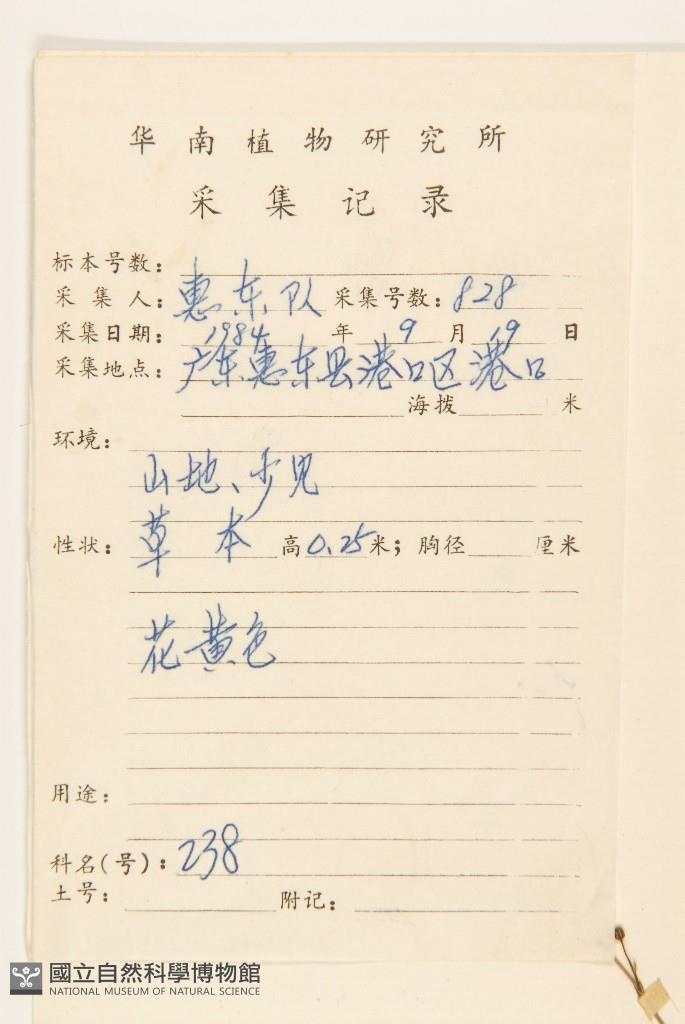 华南植物研究所
采集记录
标本号数:
采集人: 惠东队 采集号数: 828
采集日期: 1984 年 9 月 19 日
采集地点: 广东惠东县港口区港口
海拨 米
环境:
山地、少见
性状: 草本 高0.25米; 胸径 厘米
花黄色
用途:
科名(号): 238
土号: 附记:
國立自然科學博物館
NATIONAL MUSEUM OF NATURAL SCIENCE